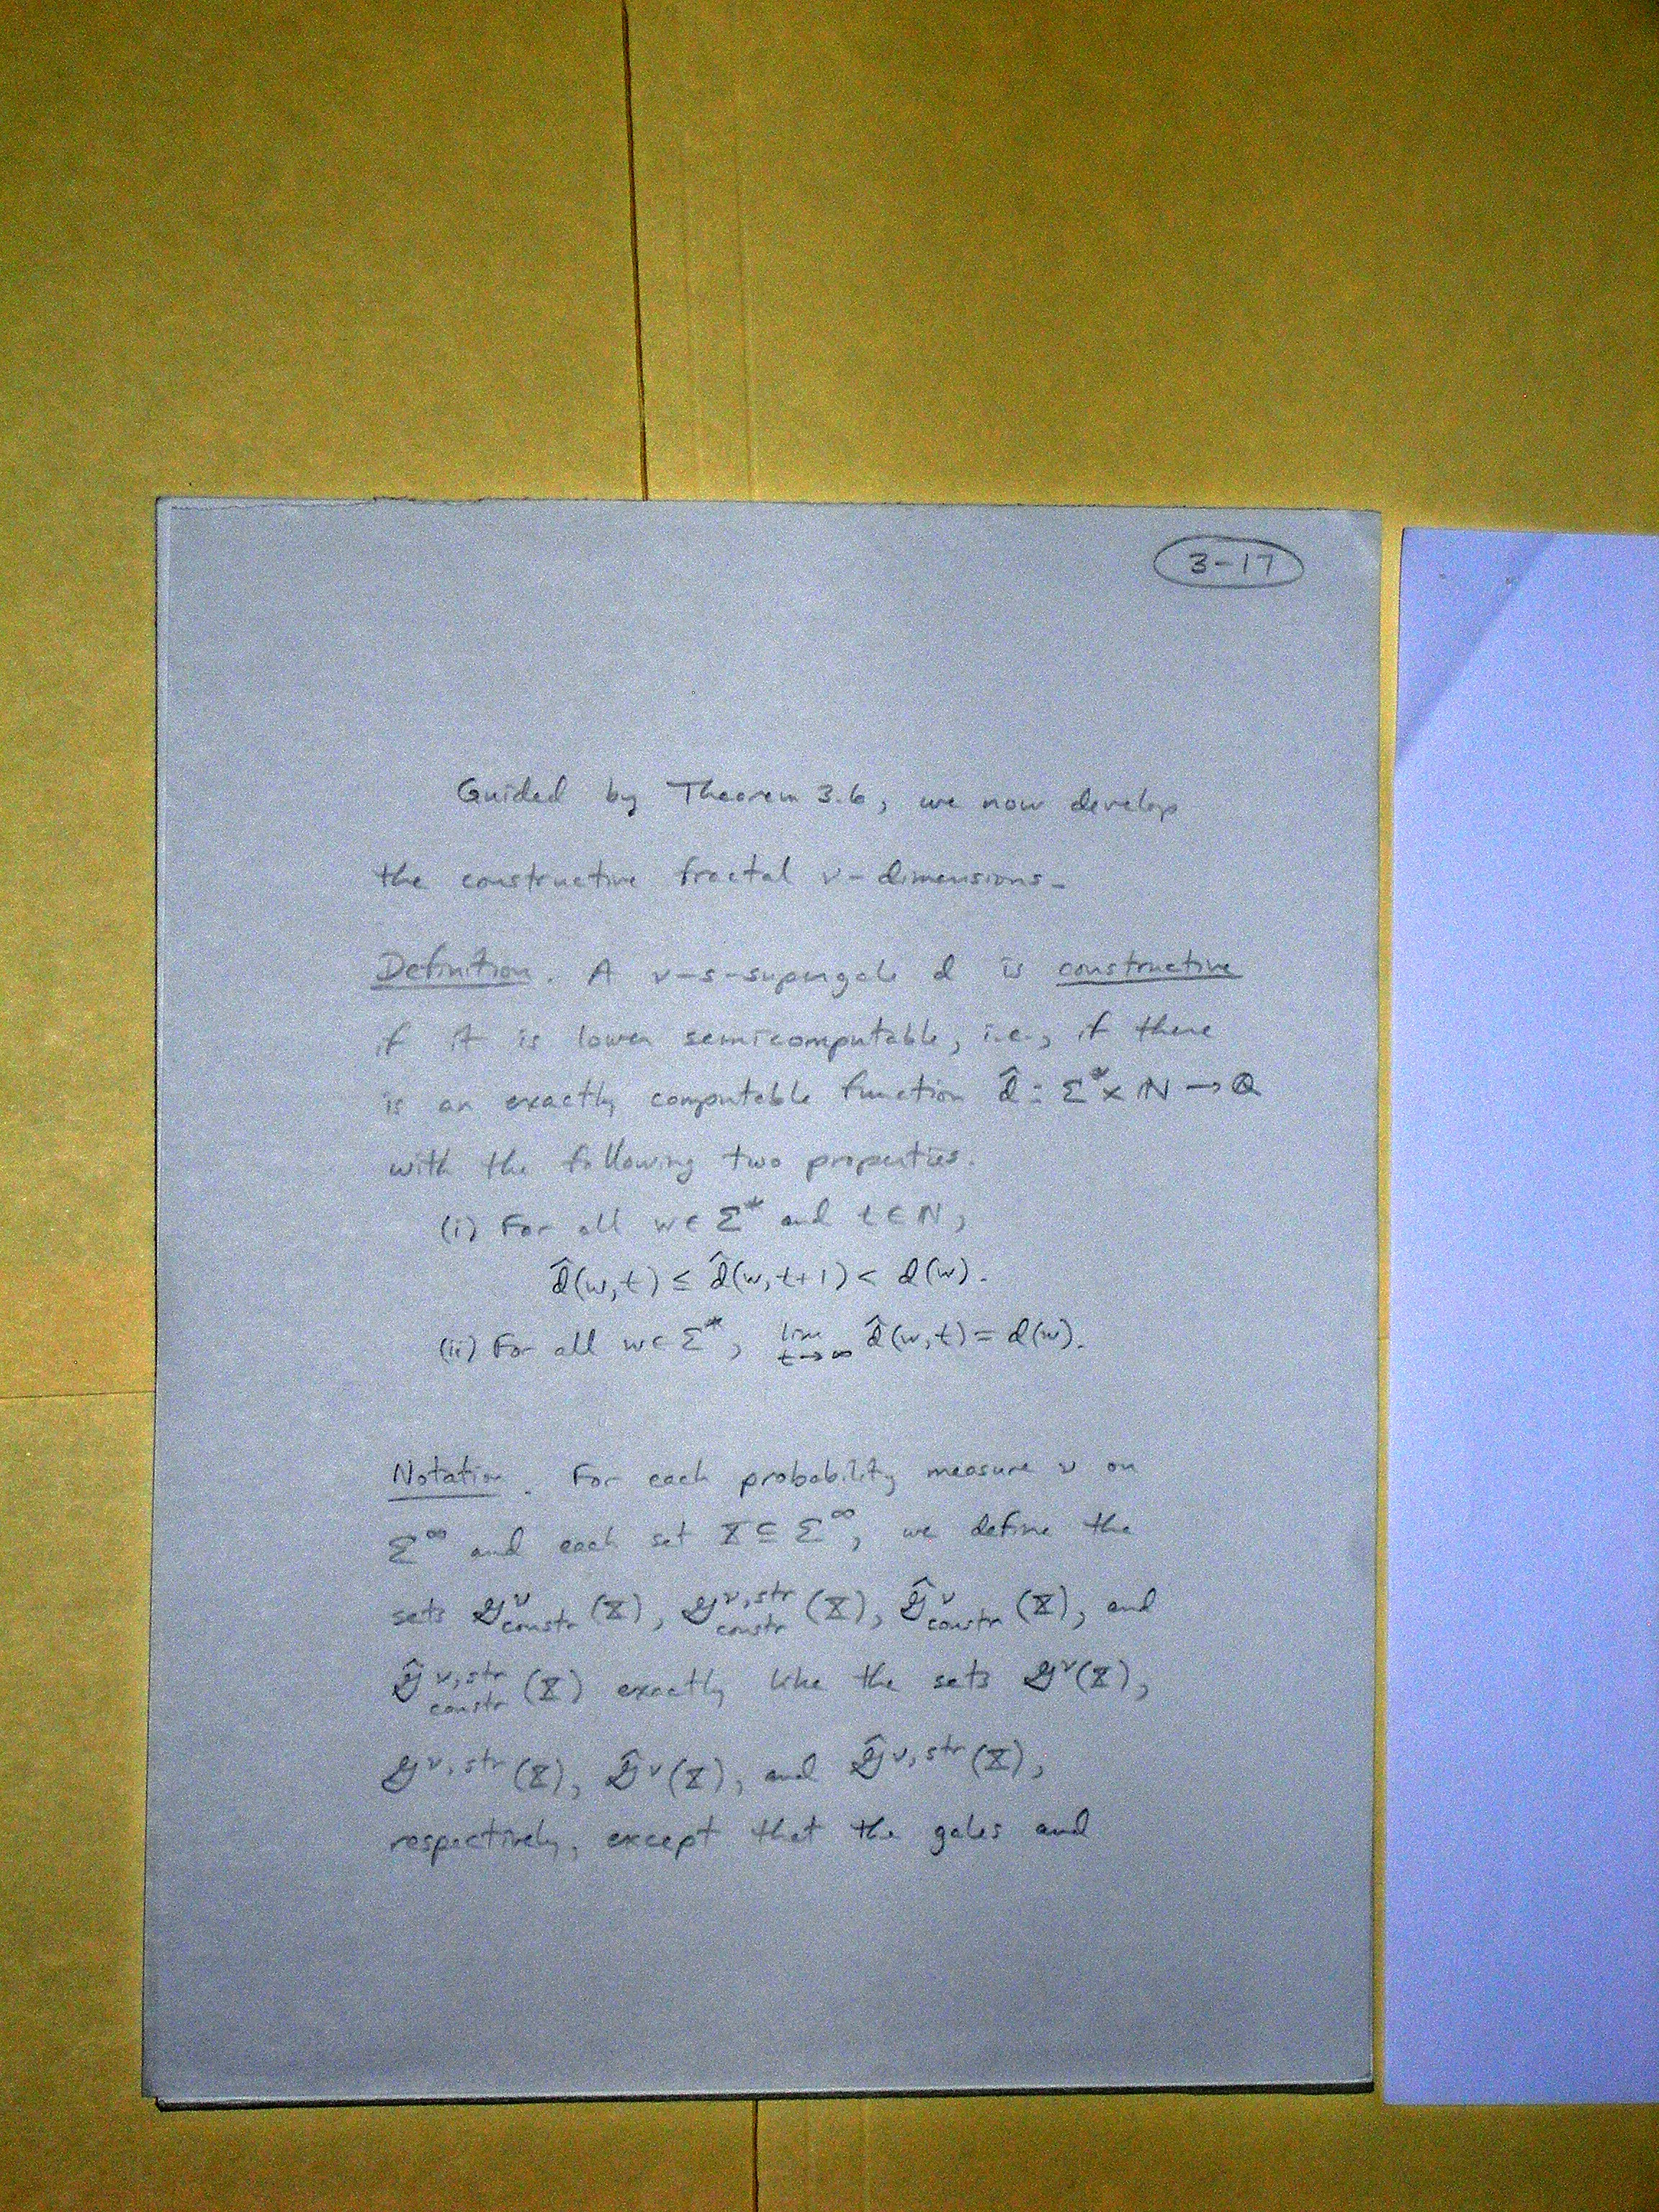 3-17
Guided by Theorem 3.6, we now develop
the constructive fractal ν-dimensions.
Definition. A ν-s-supergale d is constructive
if it is lower semicomputable, i.e., if there
is an exactly computable function d̂ : Σ* × ℕ → ℚ
with the following two properties.
(i) For all w ∈ Σ* and t ∈ ℕ,
d̂(w,t) ≤ d̂(w,t+1) < d(w).
(ii) For all w ∈ Σ*, lim_{t→∞} d̂(w,t) = d(w).
Notation. For each probability measure ν on
Σ^∞ and each set X ⊆ Σ^∞, we define the
sets 𝒢^ν_constr(X), 𝒢^{ν,str}_constr(X), 𝒢̂^ν_constr(X), and
𝒢̂^{ν,str}_constr(X) exactly like the sets 𝒢^ν(X),
𝒢^{ν,str}(X), 𝒢̂^ν(X), and 𝒢̂^{ν,str}(X),
respectively, except that the gales and